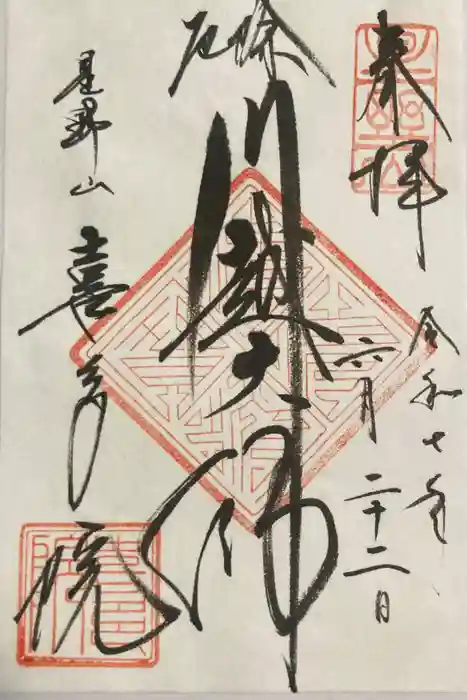 奉拝
令和七年
六月二十二日
厄除
川越大師
星野山
喜多院